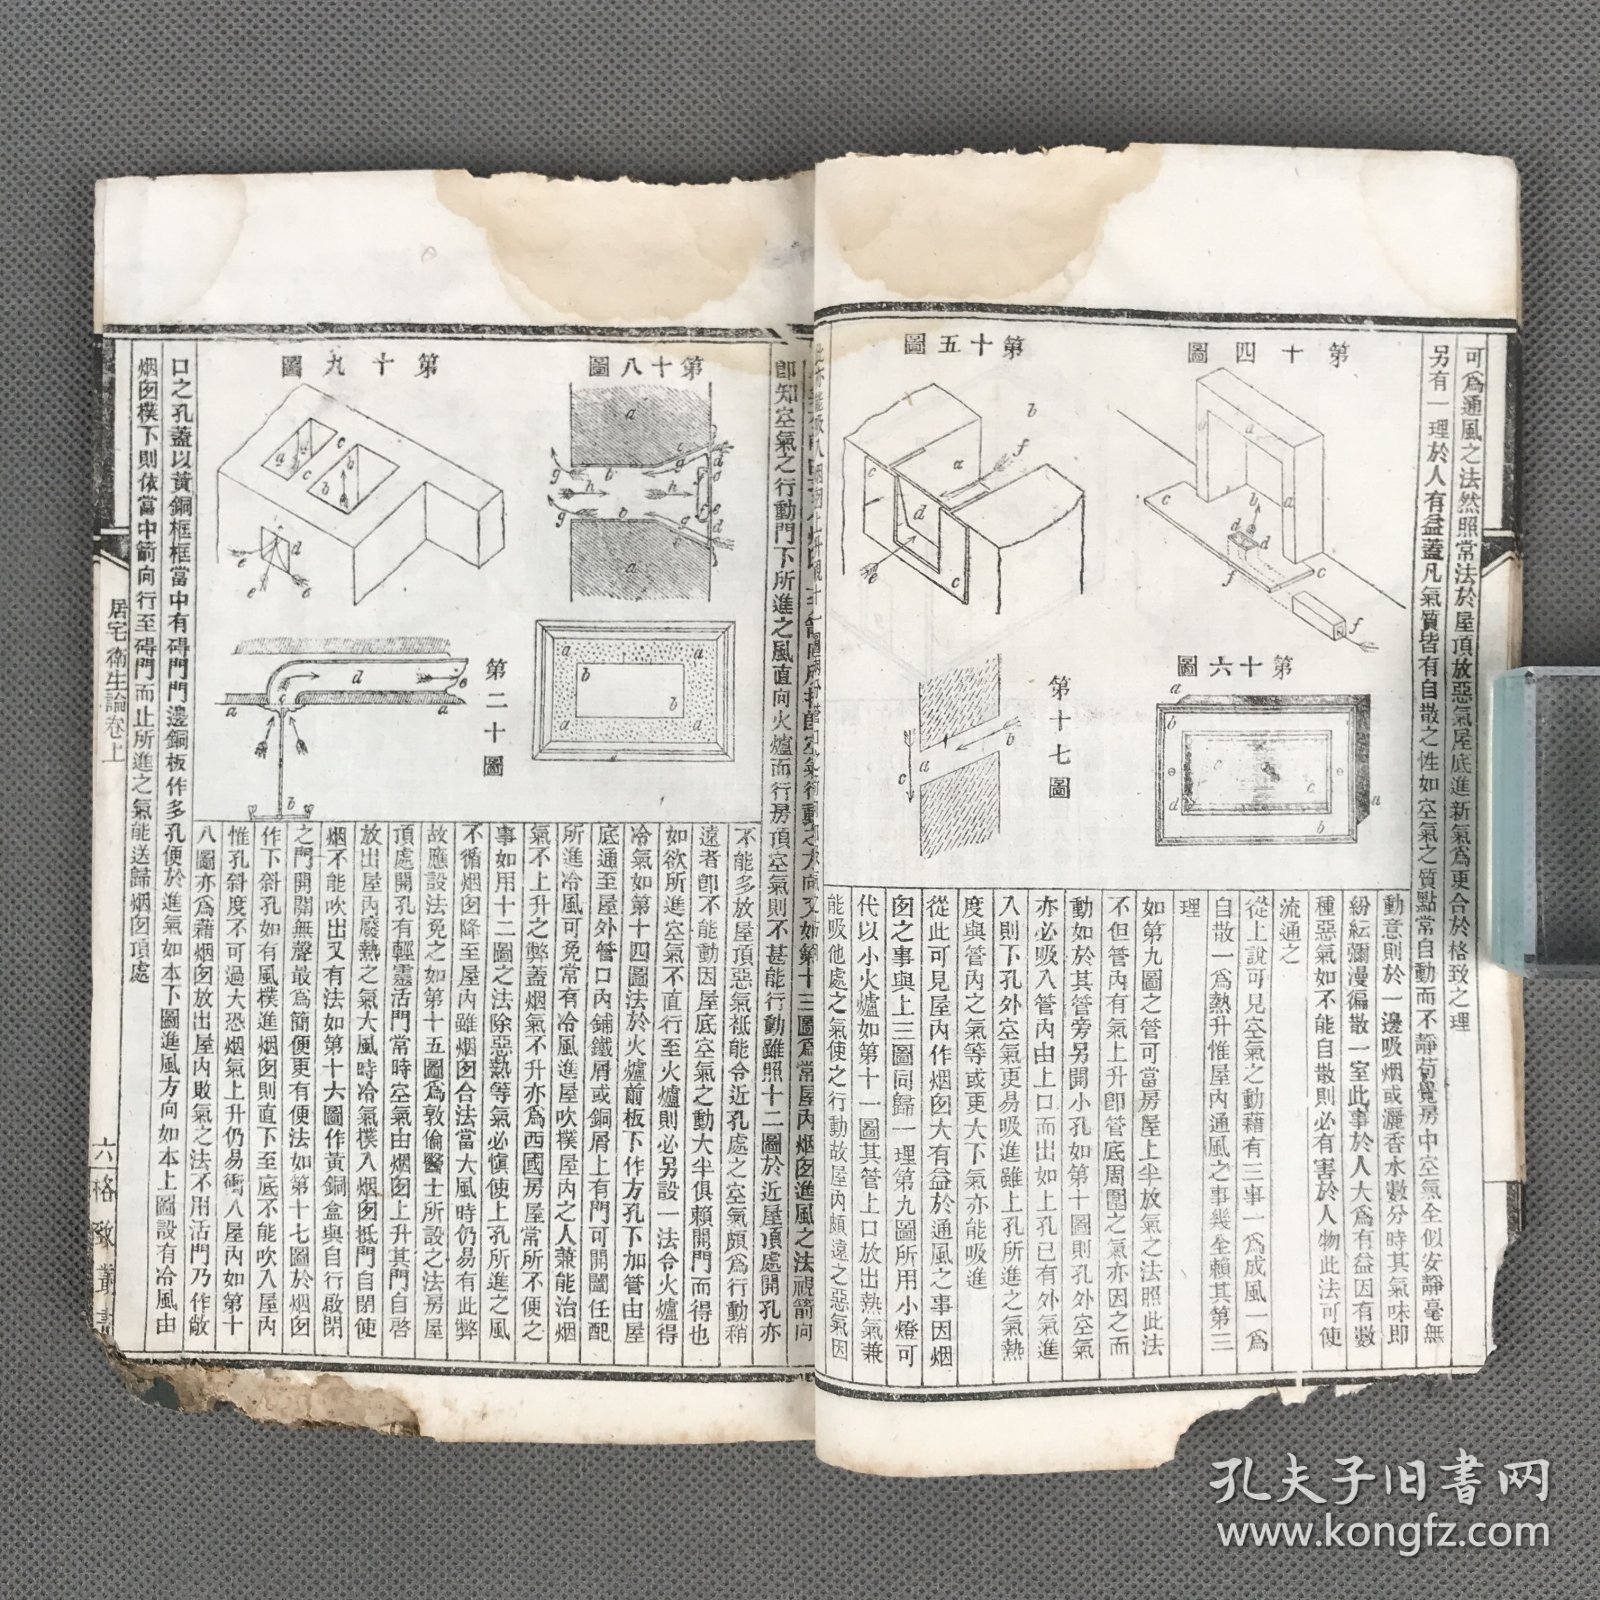 可爲通風之法然照常法於屋頂放惡氣屋底進新氣爲更合於格致之理
另有一理於人有益蓋凡氣質皆有自散之性如空氣之質點常自動而不靜苟覺房中空氣全似安靜毫無
動意則於一邊吸烟或灑香水數分時其氣味即
紛紜瀰漫徧散一室此事於人大爲有益因有數
種惡氣如不能自散則必有害於人物此法可使
流通之
從上說可見空氣之動藉有三事一爲成風一爲
自散一爲熱升惟屋內通風之事幾全賴其第三
理
如第九圖之管可當房屋上半放氣之法照此法
不但管內有氣上升卽管底周圍之氣亦因之而
動如於其管旁另開小孔如第十圖則孔外空氣
亦必吸入管內由上口而出如上孔已有外氣進
入則下孔外空氣更易吸進雖上孔所進之氣熱
度與管內之氣等或更大下氣亦能吸進
從此可見屋內作烟囱大有益於通風之事因烟
囱之事與上三圖同歸一理第九圖所用小燈可
代以小火爐如第十一圖其管上口放出熱氣兼
能吸他處之氣使之行動故屋內頗遠之惡氣因
第十四圖
第十五圖
第十六圖
第十七圖
卽知空氣之行動門下所進之風直向火爐而行房頂空氣則不甚能行動雖照十二圖於近屋頂處開孔亦
不能多放屋頂惡氣祗能令近孔處之空氣頗爲行動稍
遠者卽不能動因屋底空氣之動大半俱賴開門而得也
如欲所進空氣不直行至火爐則必另設一法令火爐得
冷氣如第十四圖法於火爐前板下作方孔下加管由屋
底通至屋外管口內鋪鐵屑或銅屑上有門可開闔任配
所進冷風可免常有冷風進屋吹撲屋內之人兼能治烟
氣不上升之弊蓋烟氣不升亦爲西國房屋常所不便之
事如用十二圖之法除惡熱等氣必愼使上孔所進之風
不循烟囱降至屋內雖烟囱合法當大風時仍易有此弊
故應設法免之如第十五圖爲敦倫醫士所設之法房屋
頂處開孔有輕靈活門常時空氣由烟囱上升其門自啓
放出屋內廢熱之氣大風時冷氣撲入烟囱抵門自閉使
烟不能吹出又有法如第十六圖作黃銅盒與自行啟閉
之門開關無聲最爲簡便更有便法如第十七圖於烟囱
作下斜孔如有風撲進烟囱則直下至底不能吹入屋內
惟孔斜度不可過大恐烟氣上升仍易衝入屋內如第十
八圖亦爲藉烟囱放出屋內敗氣之法不用活門乃作敞
口之孔蓋以黃銅框框當中有碍門門邊銅板作多孔便於進氣如本下圖進風方向如本上圖設有冷風由
烟囱撲下則依當中箭向行至碍門而止所進之氣能送歸烟囱頂處
第十八圖
第十九圖
第二十圖
居宅衛生論卷上
六
格致叢書
孔夫子旧书网
www.kongfz.com